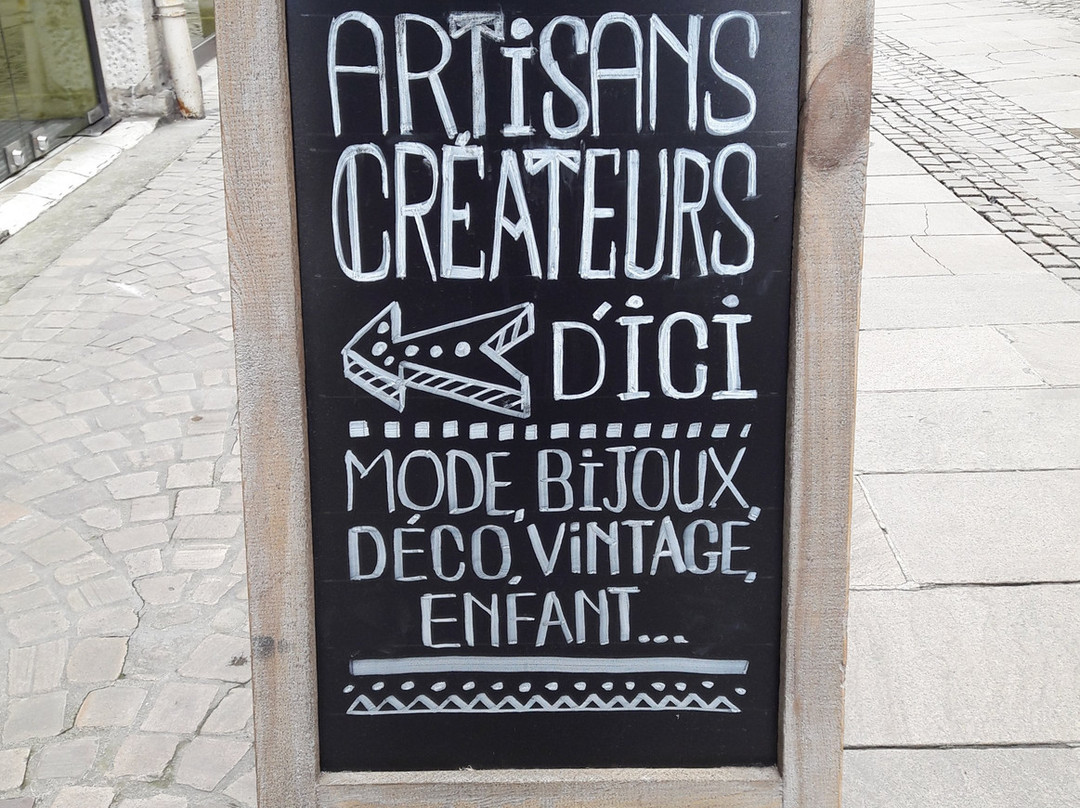 ARTiSANS
CRÉATEURS
D'iCi
MODE, BiJOUX,
DÉCO, ViNTAGE,
ENFANT...